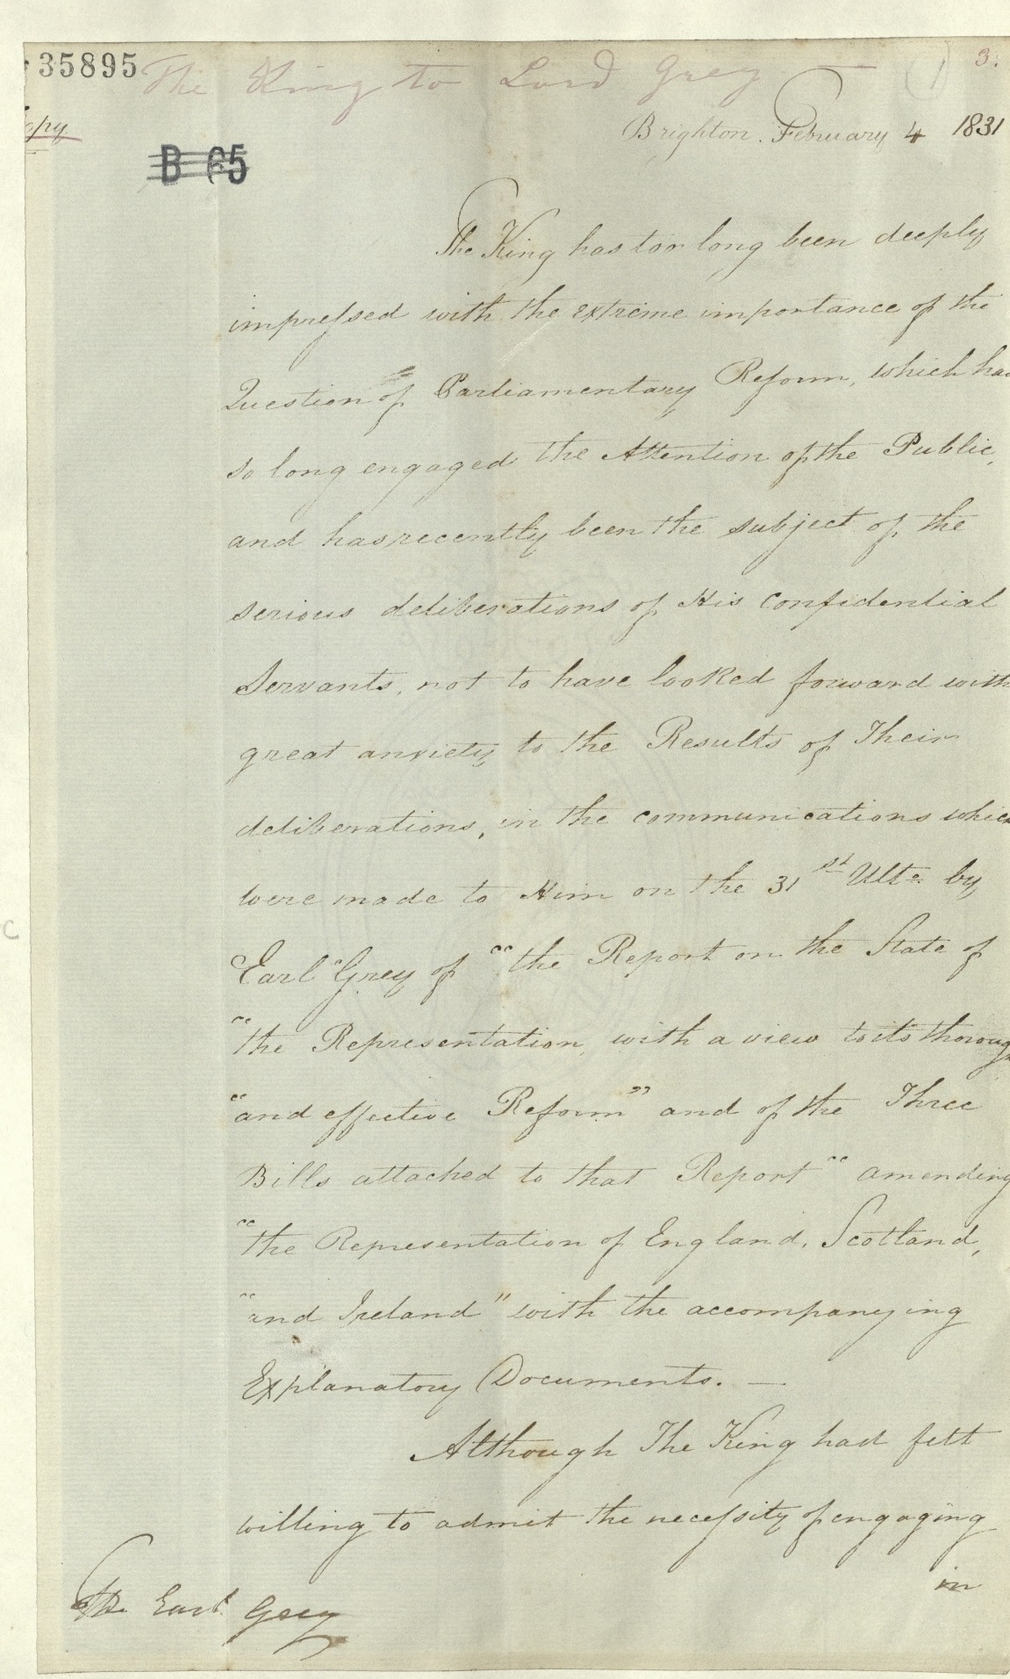 35895
The King to Lord Grey — 1 3.
opy
Brighton. February 4 1831
B 65
The King has too long been deeply
impressed with the extreme importance of the
Question of Parliamentary Reform, which has
so long engaged the Attention of the Public,
and has recently been the subject of the
serious deliberations of His Confidential
Servants, not to have looked forward with
great anxiety to the Results of Their
deliberations, in the communications which
were made to Him on the 31st Ulto by
Earl Grey of "the Report on the State of
"the Representation, with a view to its thorough
"and effective Reform" and of the Three
Bills attached to that Report "amending
"the Representation of England, Scotland,
"and Ireland" with the accompanying
Explanatory Documents. —
Although The King had felt
willing to admit the necessity of engaging
in
The Earl Grey